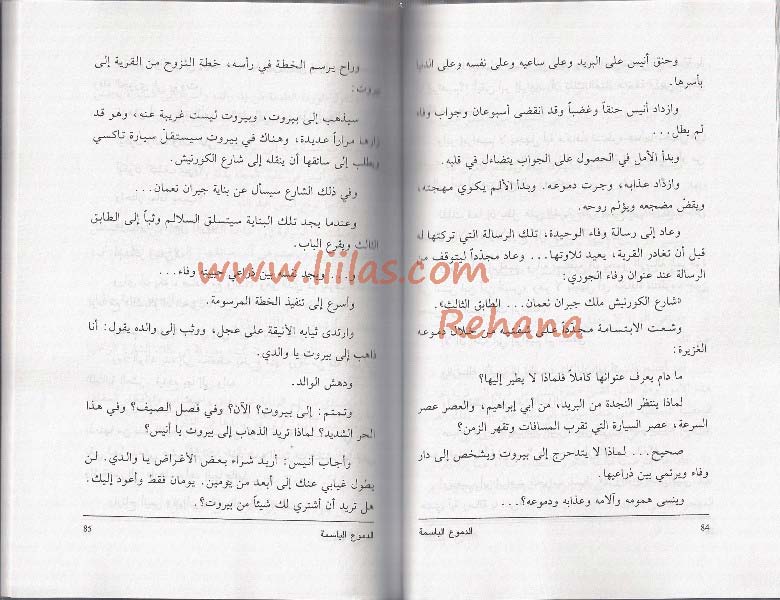 وحنق أنيس على البريد وعلى ساعيه وعلى نفسه وعلى الدنيا
بأسرها.
وازداد أنيس حنقاً وغضباً وقد انقضى أسبوعان وجواب وفاء
لم يطل...
وبدأ الأمل في الحصول على الجواب يتضاءل في قلبه.
وازداد عذابه، وجرت دموعه. وبدأ الألم يكوي مهجته،
ويقضّ مضجعه ويؤلم روحه.
وعاد إلى رسالة وفاء الوحيدة، تلك الرسالة التي تركتها له
قبل أن تغادر القرية، يعيد تلاوتها... وعاد مجدّداً ليتوقف من
الرسالة عند عنوان وفاء الجوري:
«شارع الكورنيش ملك جبران نعمان... الطابق الثالث».
وشعت الابتسامة مجدّداً على شفتيه من خلال دموعه
الغزيرة:
ما دام يعرف عنوانها كاملاً فلماذا لا يطير إليها؟
لماذا ينتظر النجدة من البريد، من أبي إبراهيم، والعصر عصر
السرعة، عصر السيارة التي تقرب المسافات وتقهر الزمن؟
صحيح... لماذا لا يتدحرج إلى بيروت ويشخص إلى دار
وفاء ويرتمي بين ذراعيها.
وينسى همومه وآلامه وعذابه ودموعه؟...
84
الدموع الباسمة
وراح يرسم الخطة في رأسه، خطة النزوح من القرية إلى
بيروت:
سيذهب إلى بيروت، وبيروت ليست غريبة عنه، وهو قد
زارها مراراً عديدة، وهناك في بيروت سيستقلّ سيارة تاكسي
ويطلب إلى سائقها أن ينقله إلى شارع الكورنيش.
وفي ذلك الشارع سيسأل عن بناية جبران نعمان...
وعندما يجد تلك البناية سيتسلق السلالم وثباً إلى الطابق
الثالث ويقرع الباب.
و... ويجد نفسه بين ذراعي حبيبته وفاء...
وأسرع إلى تنفيذ الخطة المرسومة.
وارتدى ثيابه الأنيقة على عجل، ووثب إلى والده يقول: أنا
ذاهب إلى بيروت يا والدي.
ودهش الوالد.
وتمتم: إلى بيروت؟ الآن؟ وفي فصل الصيف؟ وفي هذا
الحر الشديد؟ لماذا تريد الذهاب إلى بيروت يا أنيس؟
وأجاب أنيس: أريد شراء بعض الأغراض يا والدي. لن
يطول غيابي عنك إلى أبعد من يومين. يومان فقط وأعود إليك.
هل تريد أن أشتري لك شيئاً من بيروت؟.
الدموع الباسمة
85
www.liilas.com
Rehana